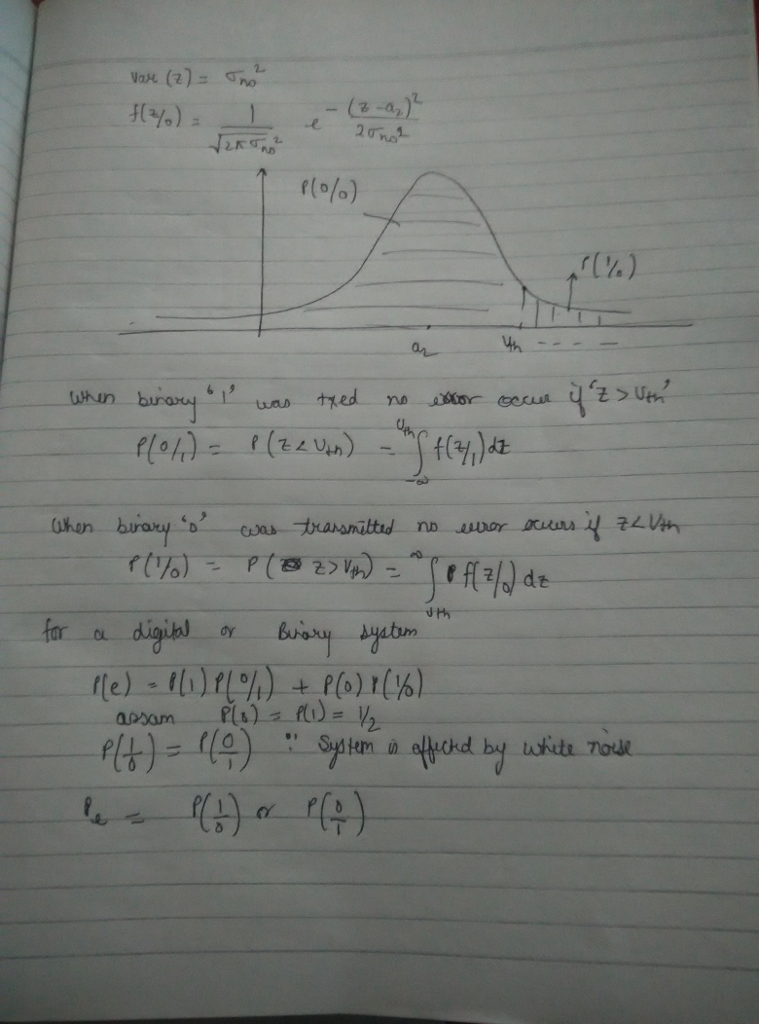 var (z) = σno²
f(z/0) = 1/√2πσno² e^-(z-a₂)²/2σno²
P(0/0)
P(1/0)
a₂ Vth - - - -
when binary '1' was txed no error occur if 'z > Vth'
P(0/1) = P(z < Vth) = ∫_{-∞}^{Vth} f(z/1) dz
when binary '0' was transmitted no error occurs if z < Vth
P(1/0) = P( z > Vth) = ∫_{Vth}^{∞} f(z/0) dz
for a digital or Binary system
P(e) = P(1) P(0/1) + P(0) P(1/0)
assam P(0) = P(1) = 1/2
P(1/0) = P(0/1) ∵ System is affected by white noise
Pe = P(1/0) or P(0/1)